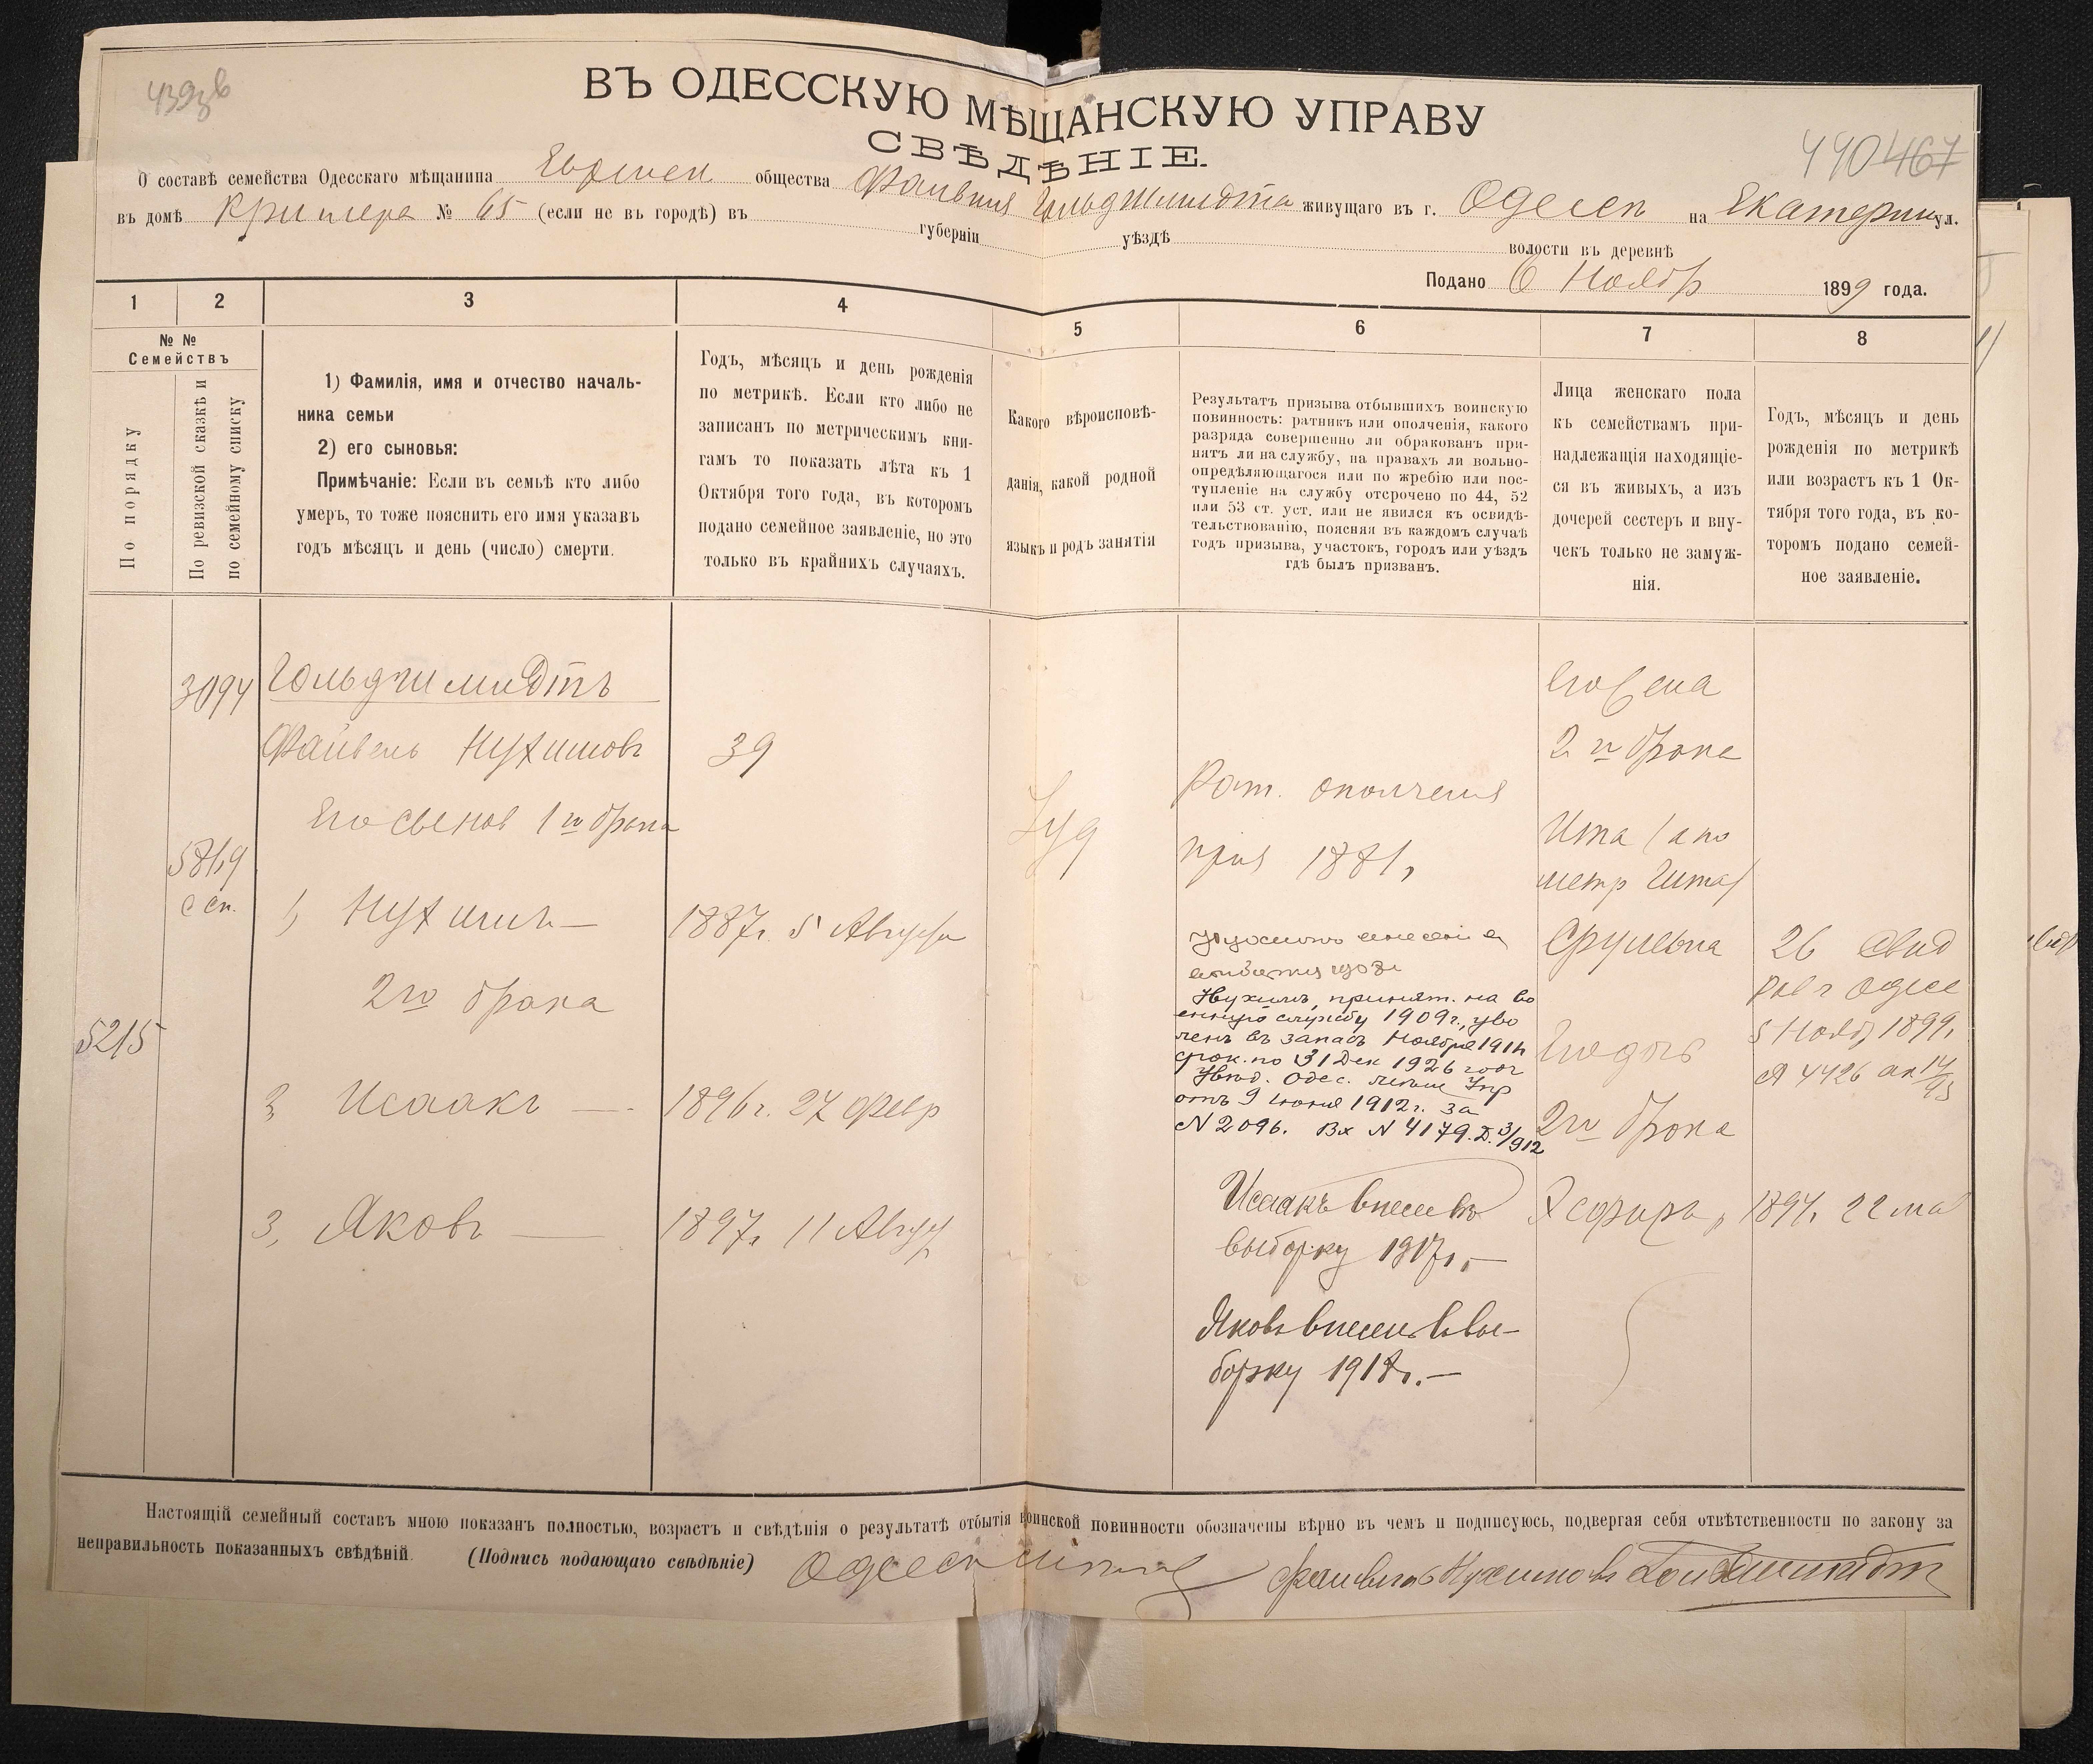 439
ВЪ ОДЕССКУЮ МѢЩАНСКУЮ УПРАВУ
СВѢДѢНІЕ.
440 467
О составѣ семейства Одесскаго мѣщанина Еврейск общества Файвеля Гольдшмидта живущаго въ г. Одессѣ на Екатерин ул.
въ домѣ № 65 (если не въ городѣ) въ губерніи уѣздѣ волости въ деревнѣ
Подано 6 Ноябр 1899 года.
1 2 3 4 5 6 7 8
№ №
Семействъ
По порядку
По ревизской сказкѣ и
по семейному списку
1) Фамилія, имя и отчество началь-
ника семьи
2) его сыновья:
Примѣчаніе: Если въ семьѣ кто либо
умеръ, то тоже пояснить его имя указавъ
годъ мѣсяцъ и день (число) смерти.
Годъ, мѣсяцъ и день рожденія
по метрикѣ. Если кто либо не
записанъ по метрическимъ кни-
гамъ то показать лѣта къ 1
Октября того года, въ которомъ
подано семейное заявленіе, но это
только въ крайнихъ случаяхъ.
Какого вѣроисповѣ-
данія, какой родной
языкъ и родъ занятія
Результатъ призыва отбывшихъ воинскую
повинность: ратникъ или ополченія, какого
разряда совершенно ли обракованъ при-
нятъ ли на службу, на правахъ ли вольно-
опредѣляющагося или по жребію или пос-
тупленіе на службу отсрочено по 44, 52
или 53 ст. уст. или не явился къ освидѣ-
тельствованію, поясняя въ каждомъ случаѣ
годъ призыва, участокъ, городъ или уѣздъ
гдѣ былъ призванъ.
Лица женскаго пола
къ семействамъ при-
надлежащія находящіе-
ся въ живыхъ, а изъ
дочерей сестеръ и вну-
чекъ только не замуж-
нія.
Годъ, мѣсяцъ и день
рожденія по метрикѣ
или возрастъ къ 1 Ок-
тября того года, въ ко-
торомъ подано семей-
ное заявленіе.
3094
5869
с сп.
5215
Гольдшмидтъ
Файвель Нухимовъ
Его сынов 1го брака
1, Нухимъ —
2го брака
2, Исаакъ —
3, Яковъ —
39
1887г. 5 Августа
1896г. 27 февр
1897г. 11 Август
Іуд
Рат. ополченія
приз 1881г.
Нухимъ, принят. на во
енную службу 1909г., уво
ленъ въ запасъ Ноября 1911г
срок. по 31 Дек 1926 года
Увѣд. Одес.
отъ 9 Іюня 1912г. за
N 2096. Вх N 4179. Д. 3/912
Исаакъ внесенъ въ
выборку 1917г. —
Яковъ внесенъ въ вы-
борку 1918г. —
Его жена
2го брака
Ита (а по
метр Гита)
Срулевна
Его дочь
2го брака
Эсфирь,
26 Свид
рав г Одес
5 Нояб 1899г.
N 4426 ал 14/93
1894г. 22 мая
Настоящій семейный составъ мною показанъ полностью, возрастъ и свѣдѣнія о результатѣ отбытія воинской повинности обозначены вѣрно въ чемъ и подписуюсь, подвергая себя отвѣтственности по закону за
неправильность показанныхъ свѣдѣній. (Подпись подающаго свѣдѣніе) Файвель Нухимовъ Гольдшмидт